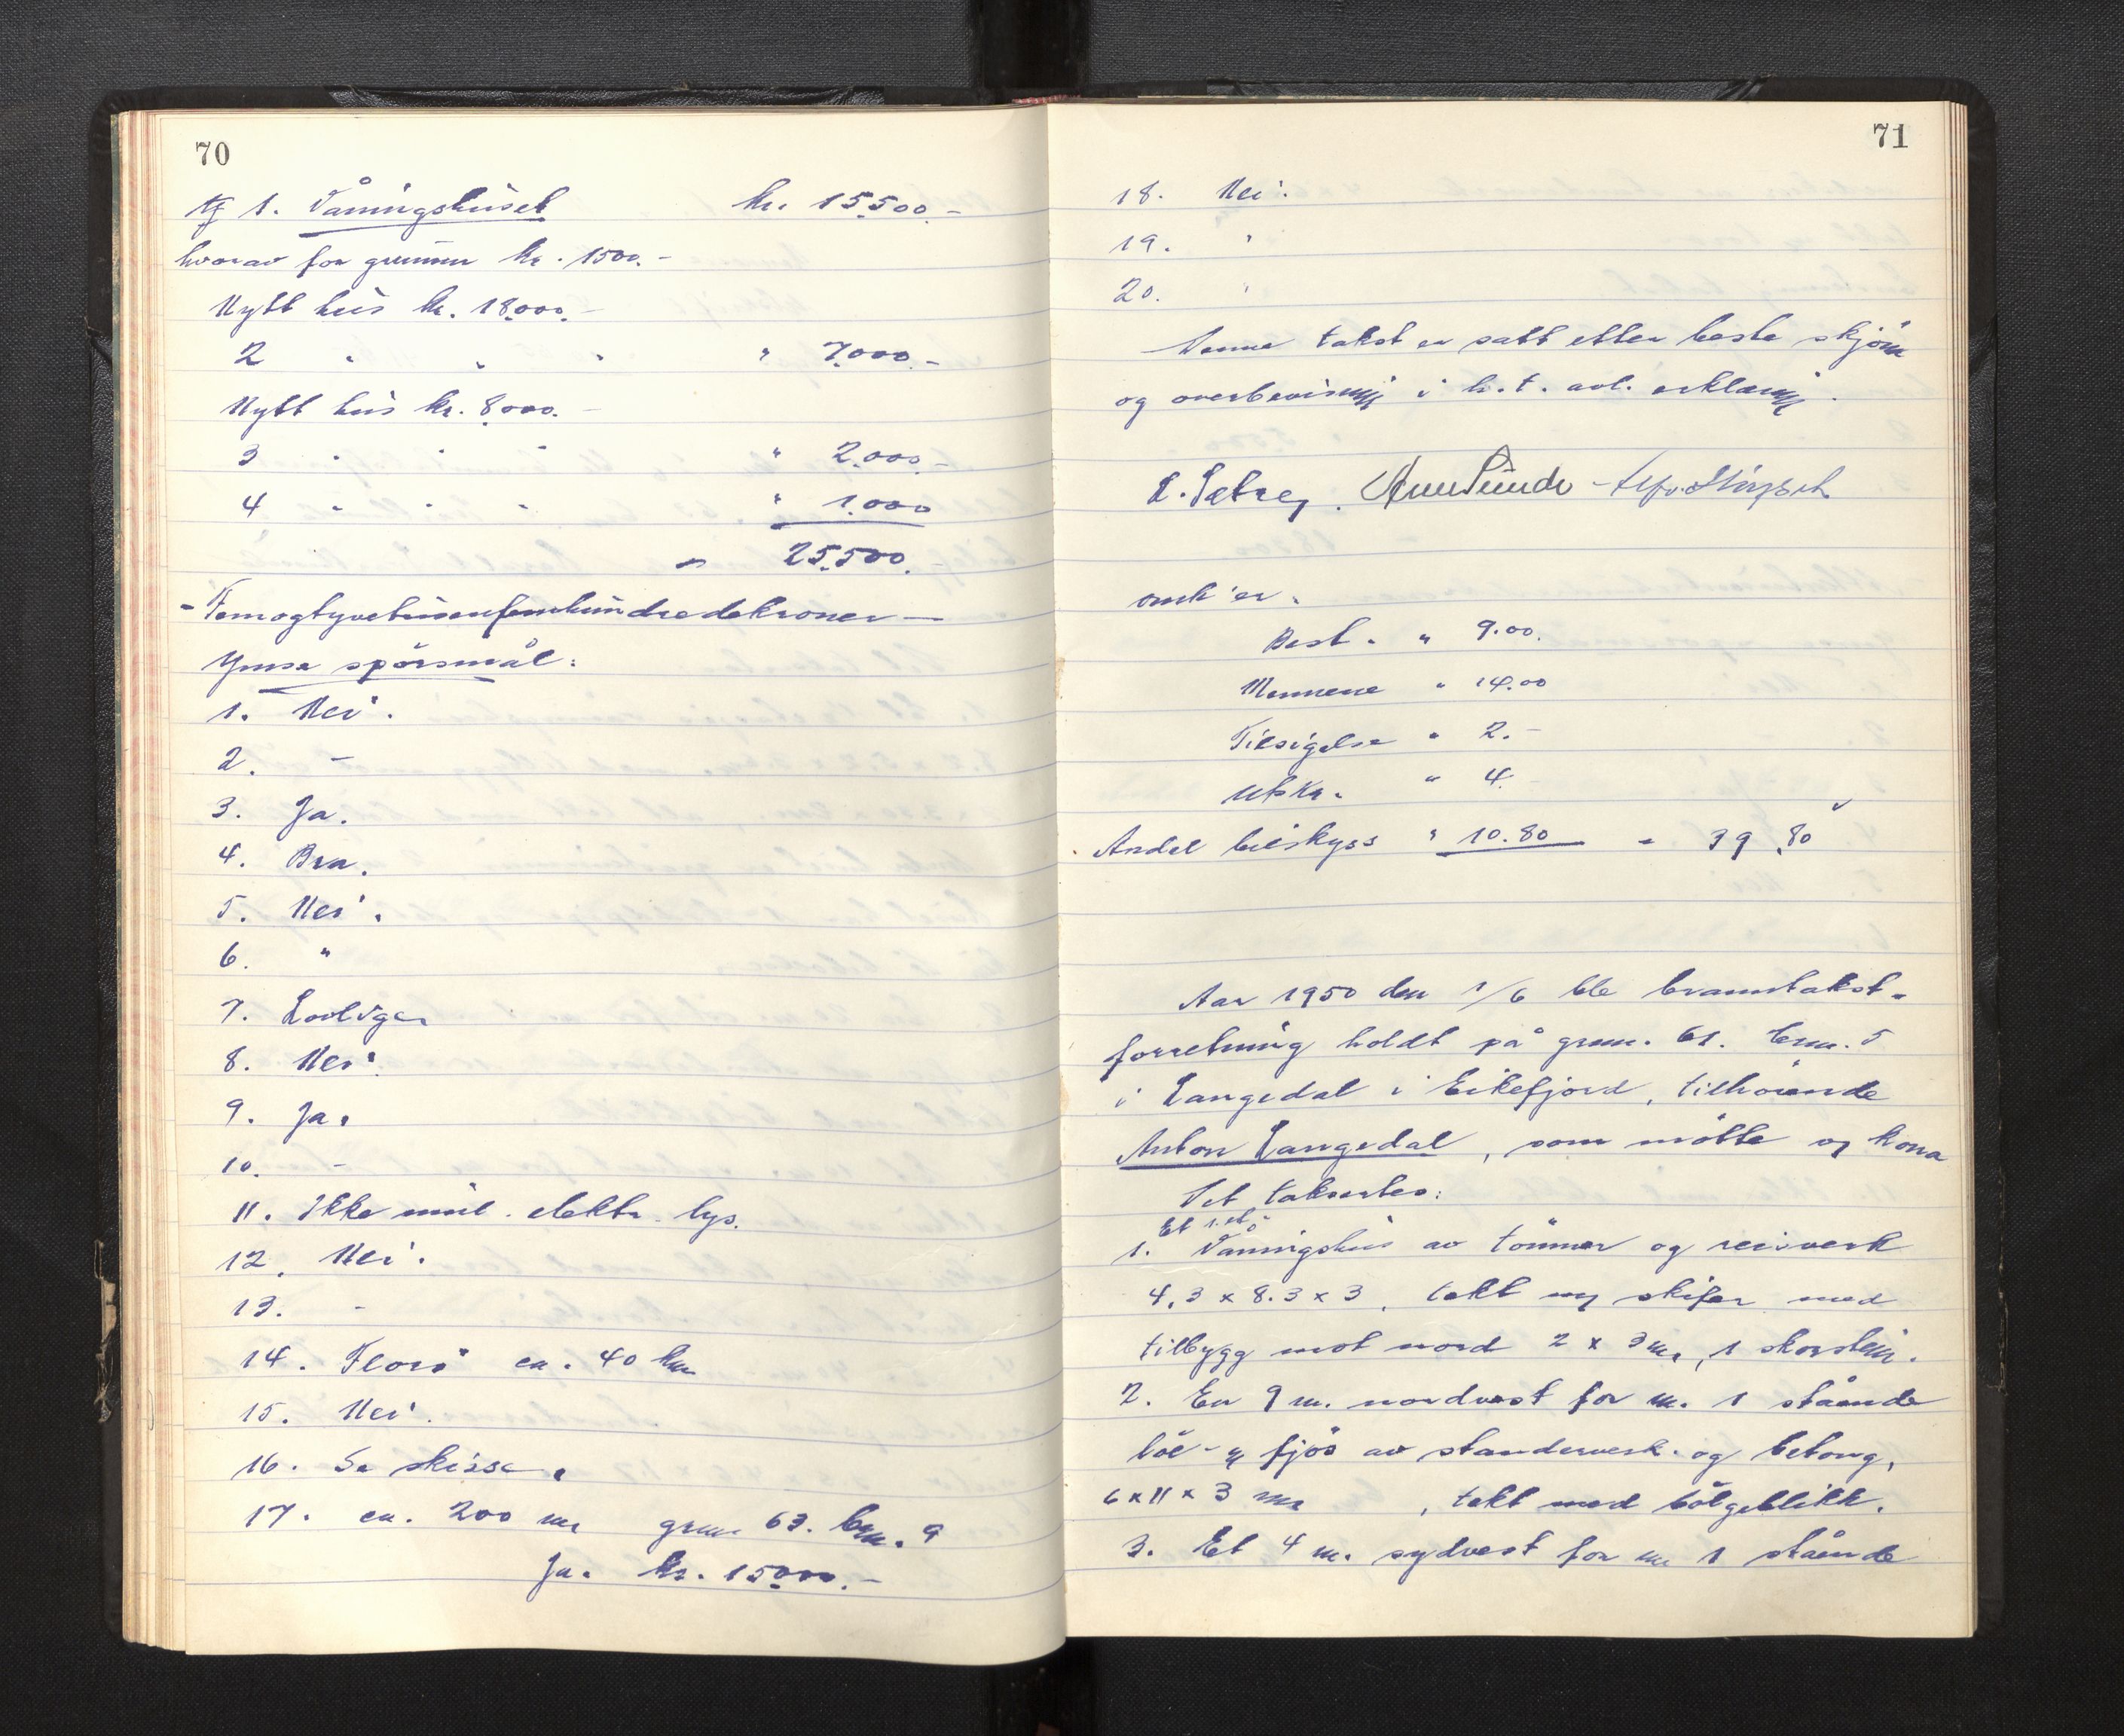 70
1. Våningshuset kr. 15.500.-
hvorav for grunnen kr. 1500.-
Nytt hus kr. 18.000.-
2 " " " " 7.000.-
Nytt hus kr. 8.000.-
3 " " " " 2.000.-
4 " " " " 1.000
" 25.500.-
- Femogtyvetusenfemhundredekroner -
Ymse spörsmål:
1. Nei.
2. -
3. Ja.
4. Bra.
5. Nei.
6. "
7. Lovlige.
8. Nei.
9. Ja.
10. -
11. Ikke inst. elektr. lys.
12. Nei.
13. -
14. Florö ca. 40 km
15. Nei.
16. Se skisse.
17. ca. 200 m grnr 63. brnr. 9
Ja. kr. 15.000.-
71
18. Nei.
19. "
20. "
Denne takst er satt etter beste skjönn
og overbevisning i h.t. avl. erklæring.
L. Sætrey.
omk'er.
Best. " 9.00.
Mennene " 14.00
Tilsigelse " 2.-
Utskr. " 4.
Andel bilskyss " 10.80 = 39.80
Aar 1950 den 1/6 ble branntakst-
forretning holdt på grnr. 61. brnr. 5
i Langedal i Eikefjord, tilhörende
Anton Langedal, som mötte og kona
Det taksertes:
Et 1. et.
1. Våningshus av tömmer og reisverk
4,3 x 8.3 x 3, tekt m skifer med
tilbygg mot nord 2 x 3 m, 1 skorstein.
2. En 9 m. nordvest for nr. 1 stående
löe- og fjös av standerverk og betong,
6 x 11 x 3 m, tekt med bölgeblikk.
3. Et 4 m. sydvest for nr 1 stående